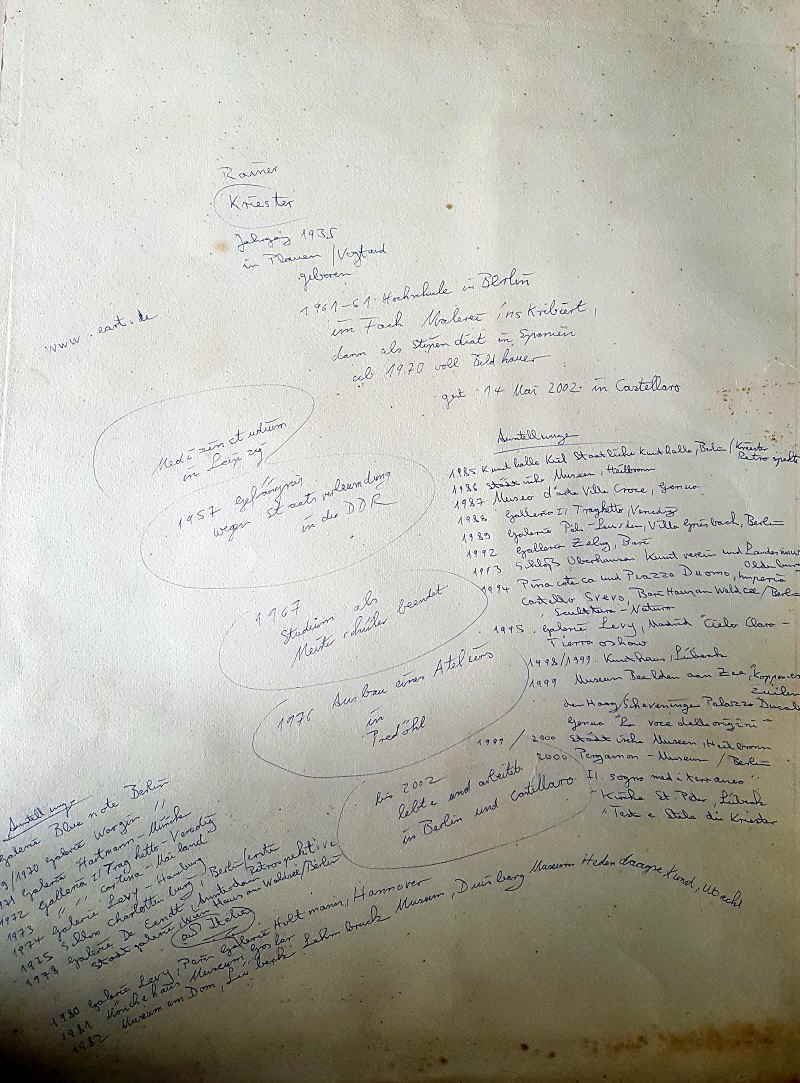 Rainer
Kriester
Jahrgang 1935
in Plauen /Vogtland
geboren
www.eart.de
1961-61 Hochschule in Berlin
im Fach Malerei inskribiert,
dann als Stipendiat in Spanien
ab 1970 voll Bildhauer
gest. 14 Mai 2002 in Castellaro
Medizinstudium
in Leipzig
1957 Gefängnis
wegen Staatsverleumdung
in die DDR
1967
Studium als
Meisterschüler beendet
1976 Ausbau eines Ateliers
in
Predöhl
bis 2002
lebte und arbeitete
in Berlin und Castellaro
Ausstellunge
1985 Kunsthalle Kiel Staatliche Kunsthalle, Berlin / Kriester
Retrospekt
1986 Städtische Museen, Heilbronn
1987 Museo d'arte Villa Croce, Genua
1988 Galleria Il Traghetto, Venedig
1989 Galerie Pels-Leusden, Villa Grisebach, Berlin
1992 Galleria Zelig, Bari
1993 Schloß Oberhausen Kunstverein und Landesmuseum
Oldenburg
1994 Pinacoteca und Piazza Duomo, Imperia
Castello Svevo, Bari Haus am Waldsee/Berlin
"Scultura-Natura
1995 Galerie Levy, Madrid "Cielo Claro-
Tierra oskuro
1998/1999 Kunsthaus, Lübeck
1999 Museum Beelden aan Zee,
den Haag/Scheveningen Palazzo Ducale
Genua "La voce delle origini-
1999/2000 Städtische Museen, Heilbronn
2000 Pergamon-Museum / Berlin
"Il sogno mediterraneo"
Kirche St. Petri, Lübeck
"Teste e Stele di Kriester
Ausstellunge
Galerie Blue note Berlin
9/1970 Galerie Wargin "
1971 Galerie Hartmann-München
1972 Galleria Il Traghetto-Venedig
1973 " " Cortina-Mailand
1974 Galerie Levy-Hamburg
1975 Schloss Charlottenburg, Berlin/erste
Retrospektive
1978 Galerie De Eendt, Amsterdam
Haus am Waldsee/Berlin
auf Italie
1980 Galerie Levy, Paris Gallerie Holtmann, Hannover
1981 Mönchehaus Museum, Goslar
1982 Museum am Dom, Lübeck Lehmbruck Museum, Duisburg Museum Hedendaagse Kunst, Utrecht